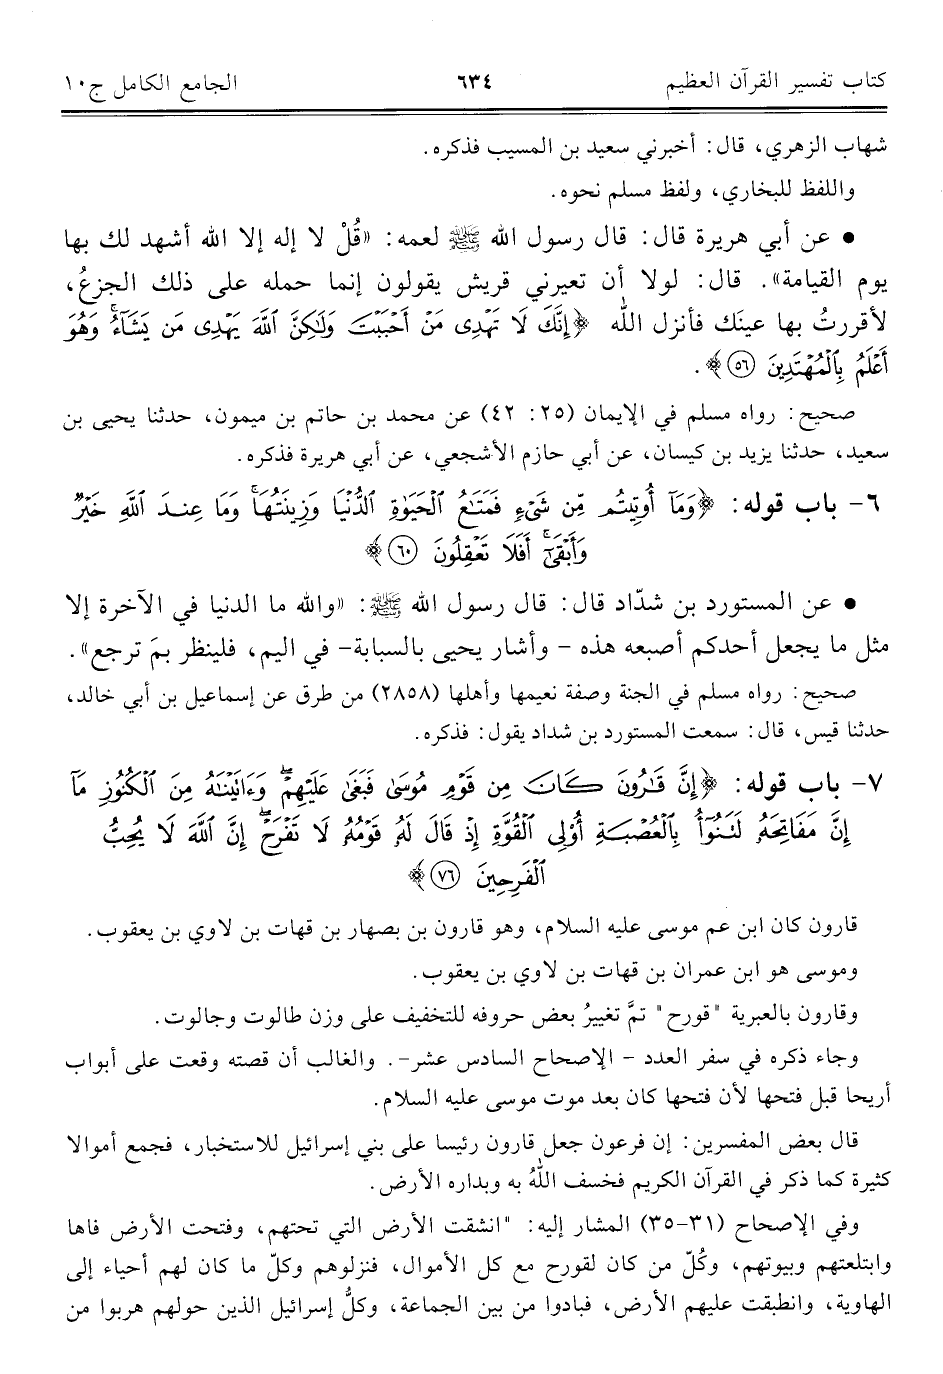 كتاب تفسير القرآن العظيم ٦٣٤ الجامع الكامل ج١٠
شهاب الزهري، قال: أخبرني سعيد بن المسيب فذكره.
واللفظ للبخاري، ولفظ مسلم نحوه.
• عن أبي هريرة قال: قال رسول الله ﷺ لعمه: «قُلْ لا إله إلا الله أشهد لك بها
يوم القيامة». قال: لولا أن تعيرني قريش يقولون إنما حمله على ذلك الجزعُ،
لأقررتُ بها عينَك فأنزل الله ﴿إِنَّكَ لَا تَهْدِى مَنْ أَحْبَبْتَ وَلَٰكِنَّ ٱللَّهَ يَهْدِى مَن يَشَآءُۚ وَهُوَ
أَعْلَمُ بِٱلْمُهْتَدِينَ ٥٦﴾.
صحيح: رواه مسلم في الإيمان (٢٥: ٤٢) عن محمد بن حاتم بن ميمون، حدثنا يحيى بن
سعيد، حدثنا يزيد بن كيسان، عن أبي حازم الأشجعي، عن أبي هريرة فذكره.
٦- باب قوله: ﴿وَمَآ أُوتِيتُم مِّن شَىْءٍ فَمَتَٰعُ ٱلْحَيَوٰةِ ٱلدُّنْيَا وَزِينَتُهَاۚ وَمَا عِندَ ٱللَّهِ خَيْرٌ
وَأَبْقَىٰٓۚ أَفَلَا تَعْقِلُونَ ٦٠﴾
• عن المستورد بن شدّاد قال: قال رسول الله ﷺ: «والله ما الدنيا في الآخرة إلا
مثل ما يجعل أحدكم أصبعه هذه - وأشار يحيى بالسبابة- في اليم، فلينظر بمَ ترجع».
صحيح: رواه مسلم في الجنة وصفة نعيمها وأهلها (٢٨٥٨) من طرق عن إسماعيل بن أبي خالد،
حدثنا قيس، قال: سمعت المستورد بن شداد يقول: فذكره.
٧- باب قوله: ﴿إِنَّ قَٰرُونَ كَانَ مِن قَوْمِ مُوسَىٰ فَبَغَىٰ عَلَيْهِمْۖ وَءَاتَيْنَٰهُ مِنَ ٱلْكُنُوزِ مَآ
إِنَّ مَفَاتِحَهُۥ لَتَنُوٓأُ بِٱلْعُصْبَةِ أُو۟لِى ٱلْقُوَّةِ إِذْ قَالَ لَهُۥ قَوْمُهُۥ لَا تَفْرَحْۖ إِنَّ ٱللَّهَ لَا يُحِبُّ
ٱلْفَرِحِينَ ٧٦﴾
قارون كان ابن عم موسى عليه السلام، وهو قارون بن بصهار بن قهات بن لاوي بن يعقوب.
وموسى هو ابن عمران بن قهات بن لاوي بن يعقوب.
وقارون بالعبرية "قورح" تمَّ تغييرُ بعض حروفه للتخفيف على وزن طالوت وجالوت.
وجاء ذكره في سفر العدد - الإصحاح السادس عشر-. والغالب أن قصته وقعت على أبواب
أريحا قبل فتحها لأن فتحها كان بعد موت موسى عليه السلام.
قال بعض المفسرين: إن فرعون جعل قارون رئيسا على بني إسرائيل للاستخبار، فجمع أموالا
كثيرة كما ذكر في القرآن الكريم فخسف اللهُ به وبداره الأرض.
وفي الإصحاح (٣١-٣٥) المشار إليه: "انشقت الأرض التي تحتهم، وفتحت الأرض فاها
وابتلعتهم وبيوتهم، وكُلّ من كان لقورح مع كل الأموال، فنزلوهم وكلّ ما كان لهم أحياء إلى
الهاوية، وانطبقت عليهم الأرض، فبادوا من بين الجماعة، وكلُّ إسرائيل الذين حولهم هربوا من